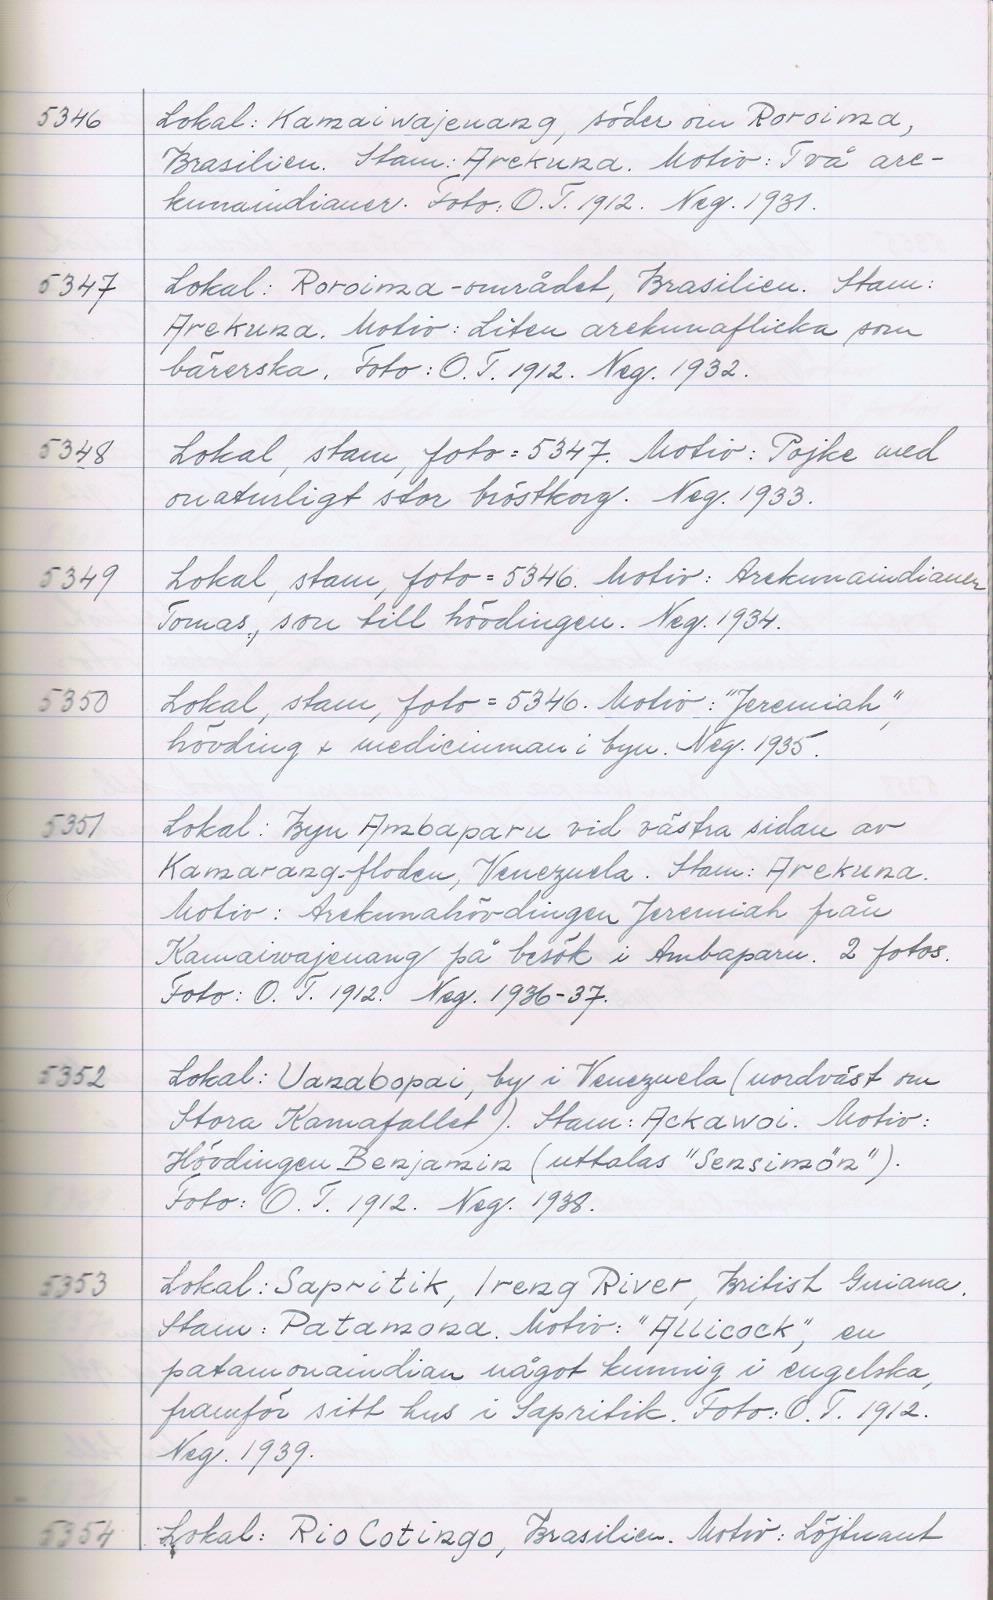 5346 Lokal: Kamaiwajenang, söder om Roroima,
Brasilien. Stam: Arekuna. Motiv: Två are-
kunaindianer. Foto: O.T. 1912. Neg. 1931.
5347 Lokal: Roroima-området, Brasilien. Stam:
Arekuna. Motiv: Liten arekunaflicka som
bärerska. Foto: O.T. 1912. Neg. 1932.
5348 Lokal, stam, foto = 5347. Motiv: Pojke med
onaturligt stor bröstkorg. Neg. 1933.
5349 Lokal, stam, foto = 5346. Motiv: Arekunaindianen
Tomas, son till hövdingen. Neg. 1934.
5350 Lokal, stam, foto = 5346. Motiv: "Jeremiah",
hövding & medicinman i byn. Neg. 1935.
5351 Lokal: Byn Ambaparu vid västra sidan av
Kamarang-floden, Venezuela. Stam: Arekuna.
Motiv: Arekunahövdingen Jeremiah från
Kamaiwajenang på besök i Ambaparu. 2 fotos.
Foto: O.T. 1912. Neg. 1936-37.
5352 Lokal: Uanabopai, by i Venezuela (nordväst om
Stora Kamafallet). Stam: Ackawoi. Motiv:
Hövdingen Benjamin (uttalas "Sensimön").
Foto: O.T. 1912. Neg. 1938.
5353 Lokal: Sapritik, Ireng River, British Guiana.
Stam: Patamona. Motiv: "Allicock", en
patamonaindian något kunnig i engelska,
framför sitt hus i Sapritik. Foto: O.T. 1912.
Neg. 1939.
5354 Lokal: Rio Cotingo, Brasilien. Motiv: Löjtnant